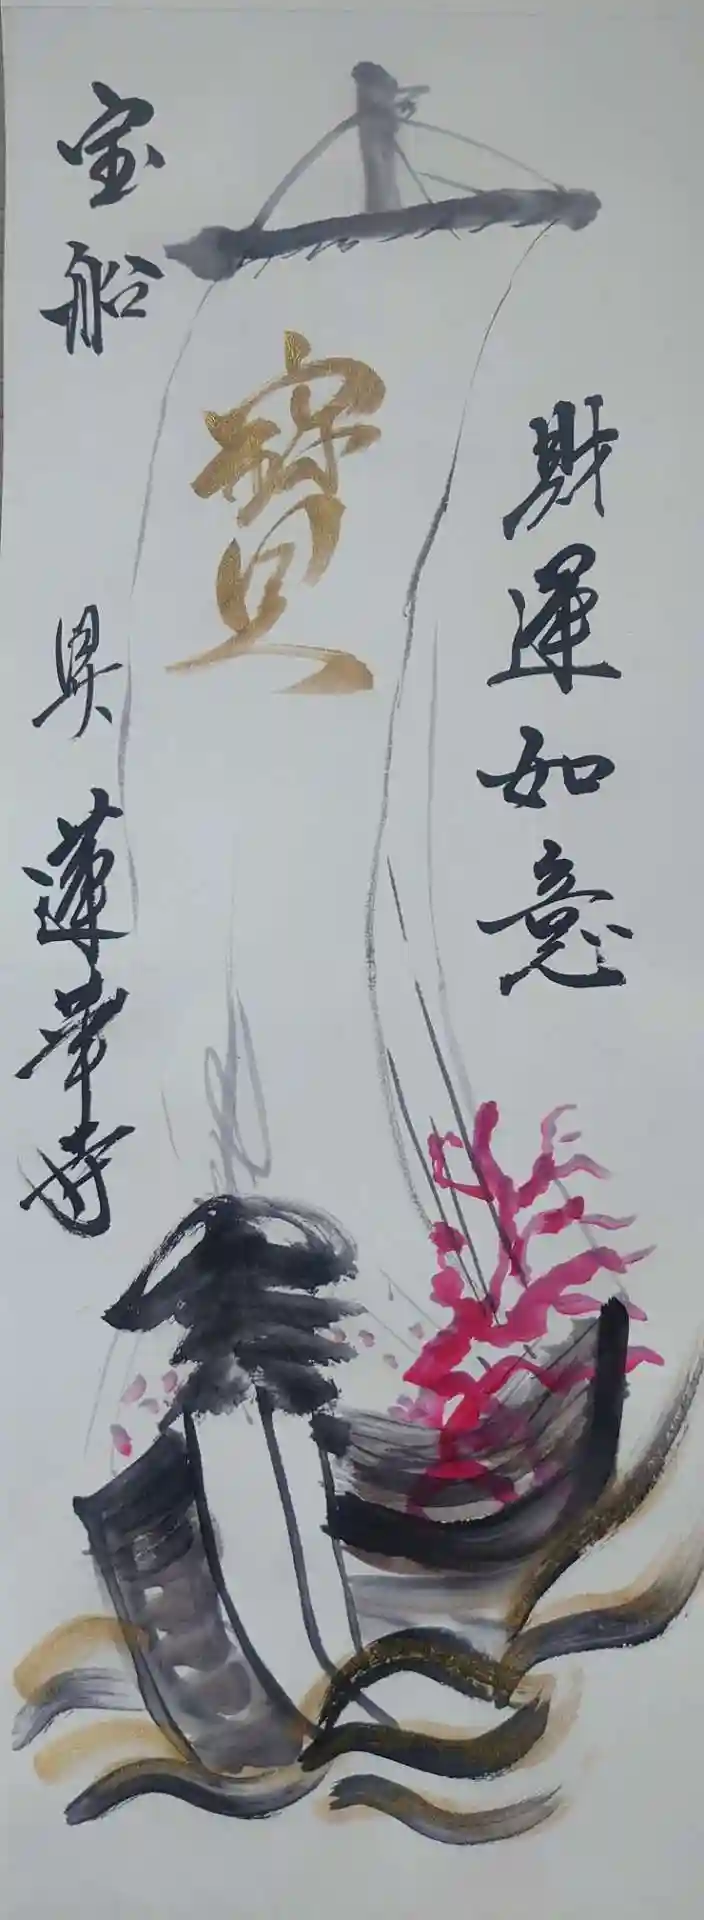 財運如意
寶
宝船
蓮華寺